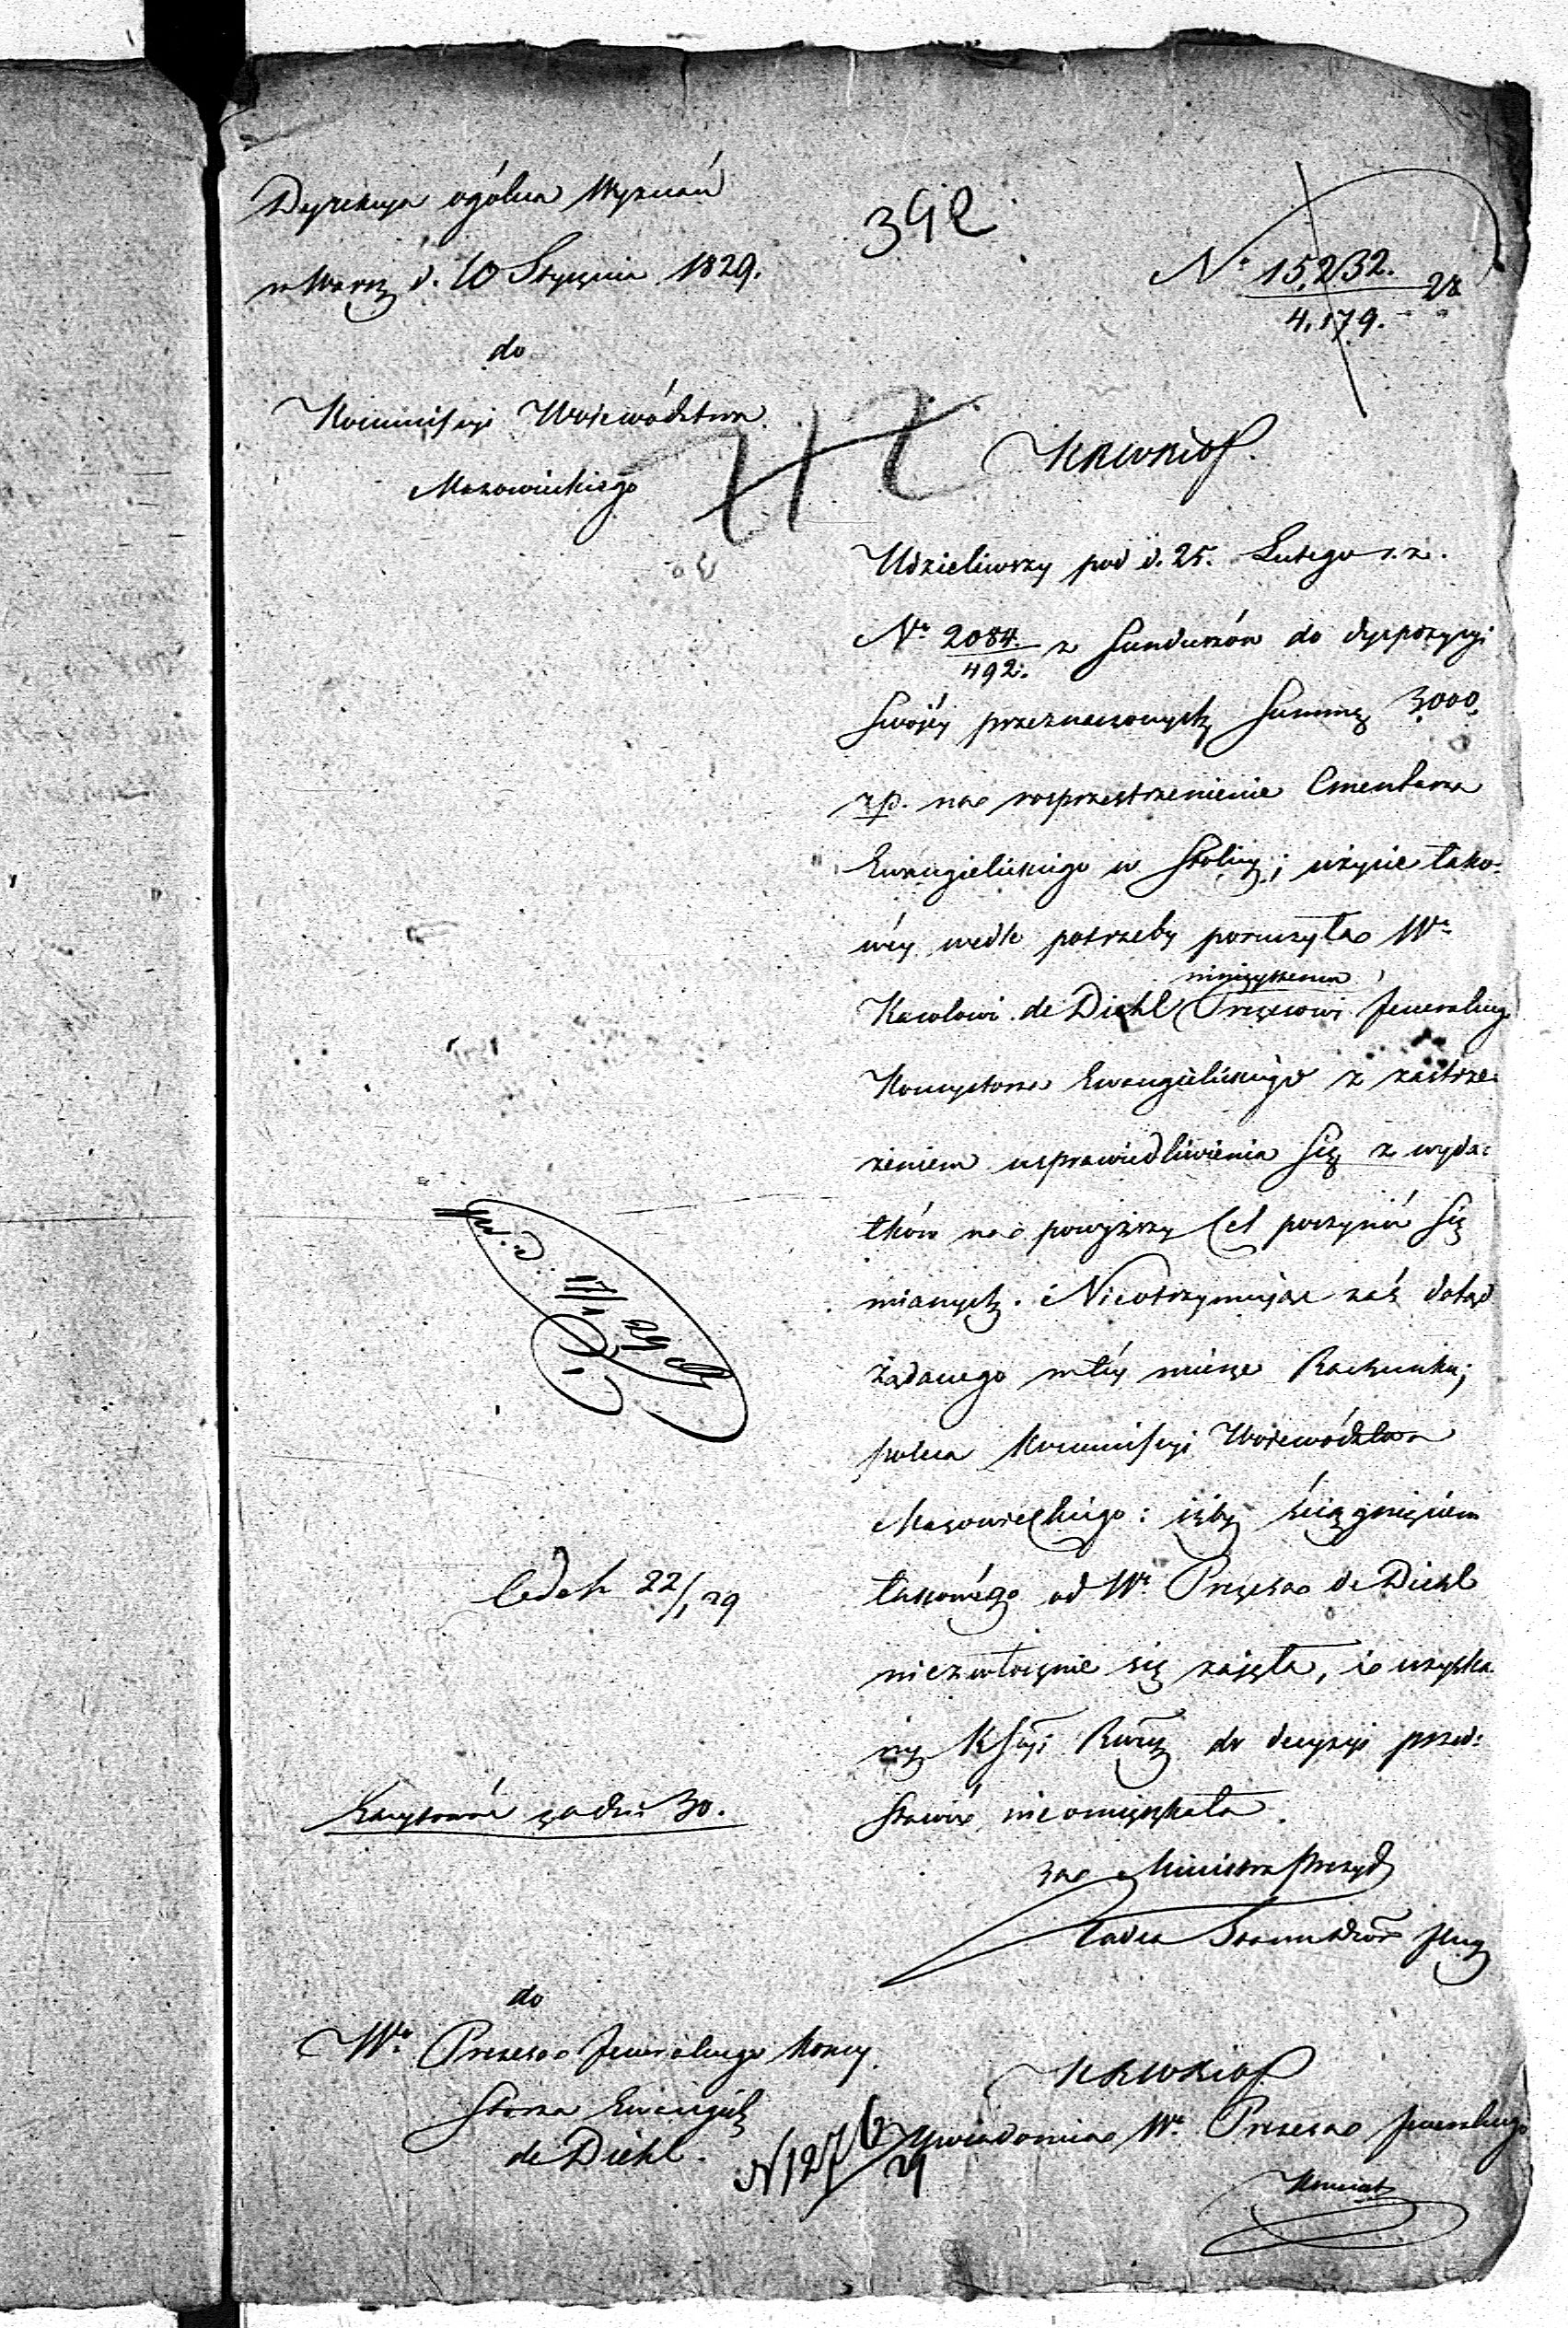 Dyrekcya ogólna Wyznań
392
w Warsz. d. 10 Stycznia 1829.
Nr 15,232. 28
4,179.
do
Kommissyi Województwa
Mazowieckiego
KRWRiOP.
Udzieliwszy pod d. 25. Lutego r. z.
Nr 2084. z funduszów do dyspozycyi
492.
swojéy przeznaczonych summę 3000
zp. na rozprzestrzenienie Cmentarza
Ewangielickiego w Stolicy; użycie tako-
wéy wedle potrzeby poruczyła Wu
Karolowi de Diehl Prezesowi Jeneralnego
Konsystorza Ewangelickiego z zastrze-
żeniem usprawiedliwienia się z wyda-
tków na powyższy Cel poczynić się
mianych. Nieotrzymując zaś dotąd
żądanego w téy mierze Rachunku;
poleca Kommissyi Województwa
Mazowieckiego: iżby ściągnięciem
takowego od Wo Prezesa de Diehl
niezwłocznie się zajęła, i uzyska-
ny do decyzyi przed-
stawić nieomieszkała.
17/1 29
22/1 29
30.
za Ministra Prezyd.
Radca Stanu
do
Wo Prezesa Jeneralnego Konsy-
storza Ewangiel.
de Diehl.
KRWRiOP
Uwiadomia Wo Prezesa Jeneralnego
N 1276